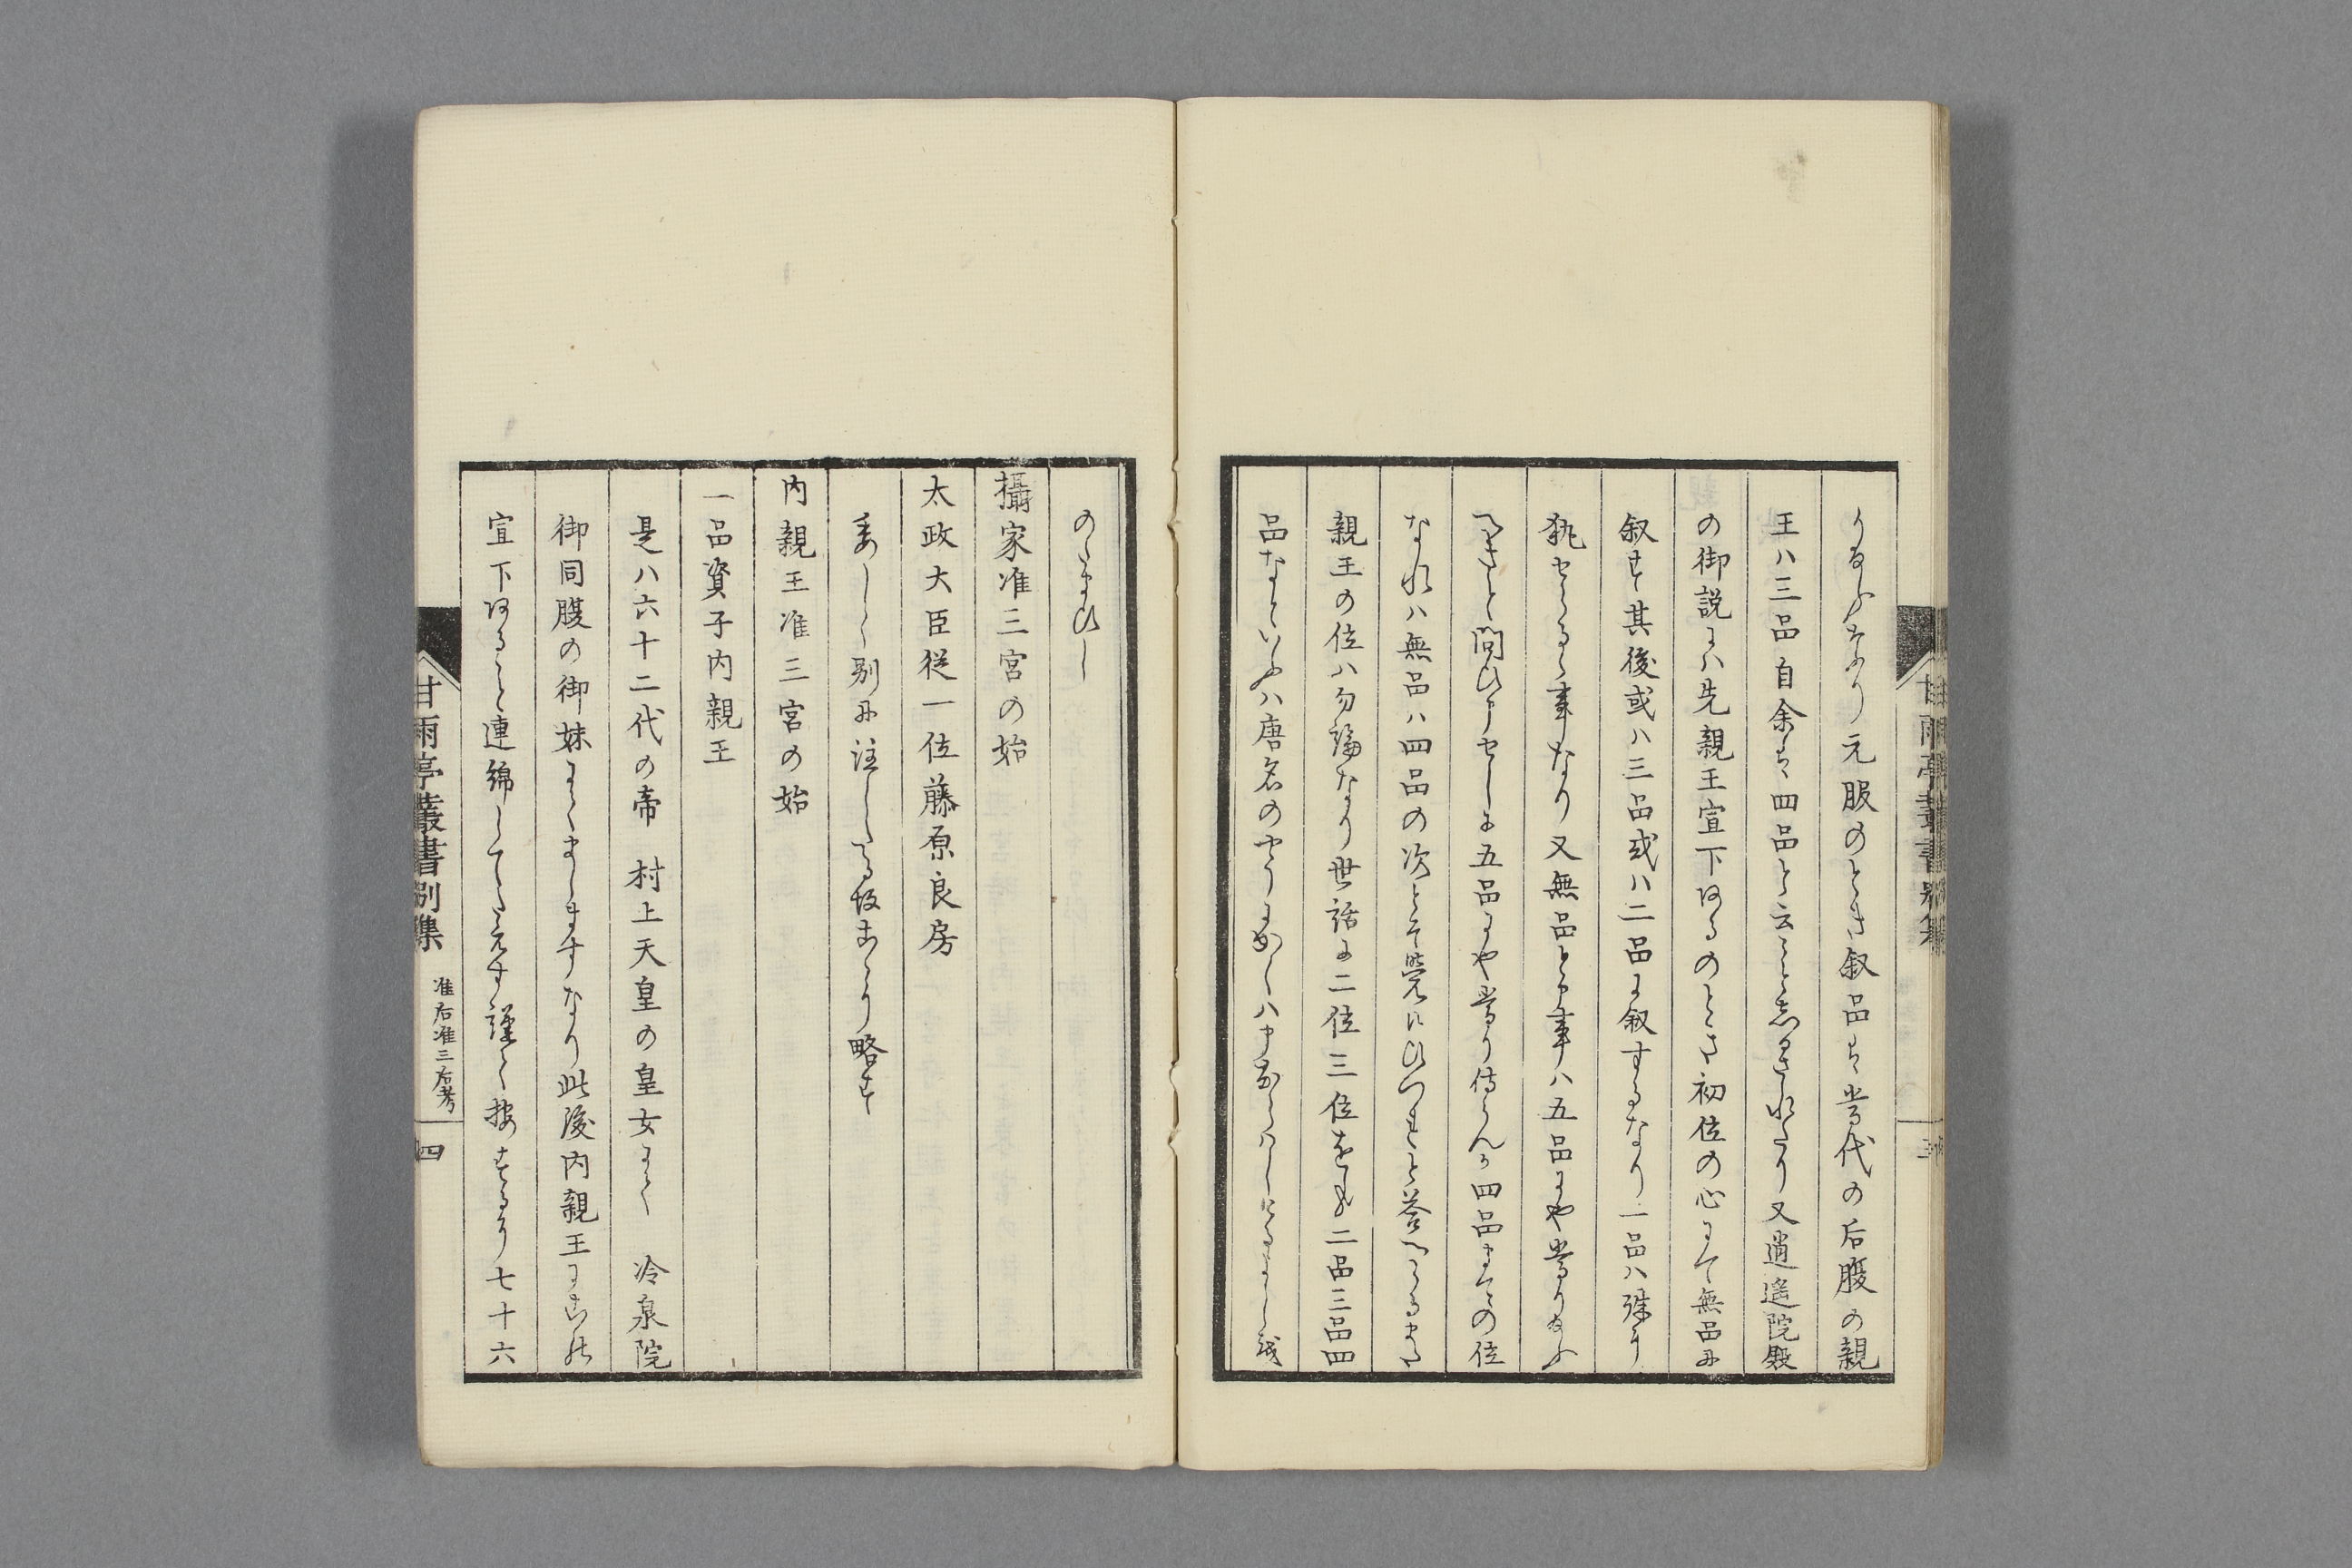 りなふなり元服のとき叙品は当代の后腹の親
王ハ三品自余は四品と云ことしるされたり又逍遥院殿
の御説にハ先親王宣下あるのとき初位の心にて無品に
叙す其後或ハ三品或ハ二品に叙するなり一品ハ殊に
執せらるゝ事なり又無品と申事ハ五品にや当りなふ
へきと問ひ申せしに五品にや当り侍らんか四品まての位
なれハ無品ハ四品の次とそ覚にひつれと答へらるまた
親王の位ハ勿論なり世話に二位三位をも二品三品四
品なといふハ唐名のやうに
甘雨亭叢書別集
のたまひし
攝家准三宮の始
太政大臣従一位藤原良房
委しく別に注したる故こゝに略す
内親王准三宮の始
一品資子内親王
是ハ六十二代の帝 村上天皇の皇女にて 冷泉院
御同腹の御妹にてましますなり此後内親王にこの
宣下あること連綿してたえす謹て按するに七十六
甘雨亭叢書別集 准后准三后考 四